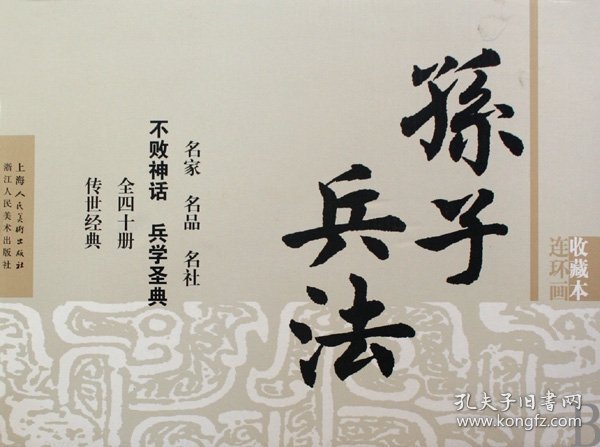 孫子
兵法
收藏本
连环画
名家 名品 名社
不败神话 兵学圣典
全四十册
传世经典
上海人民美術出版社
浙江人民美术出版社
孔夫子旧书网
kongfz.com